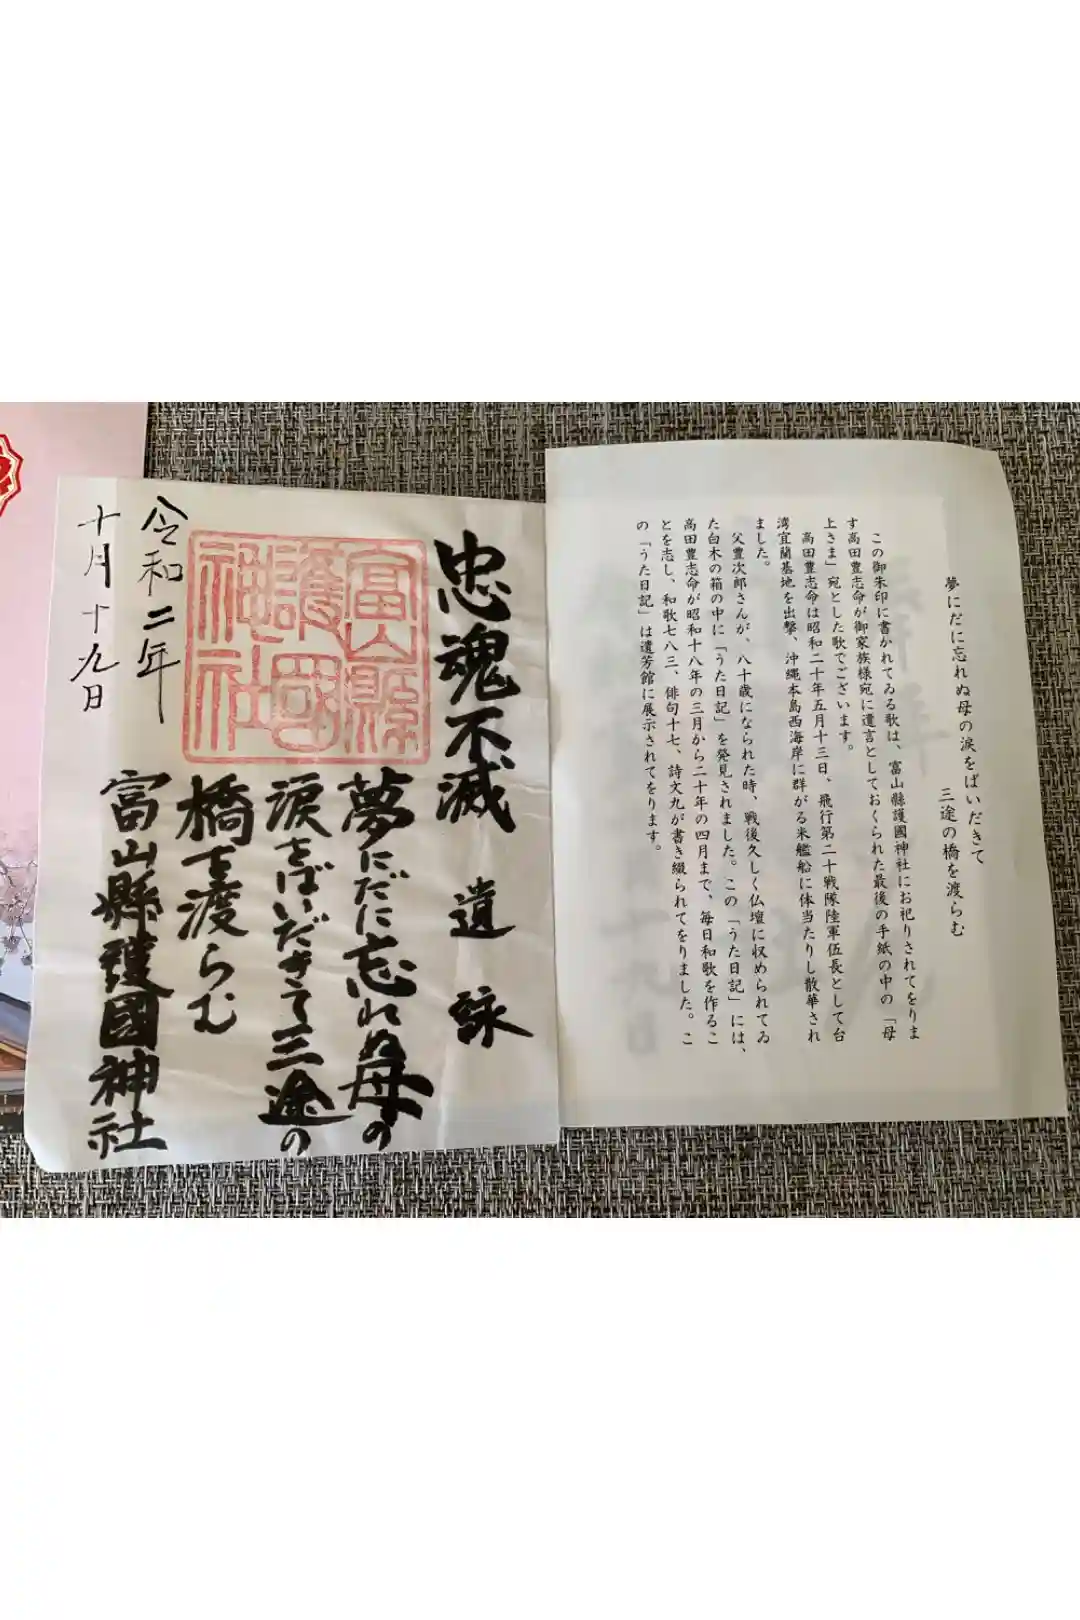 夢にだに忘れぬ母の涙をばいだきて
三途の橋を渡らむ
この御朱印に書かれてゐる歌は、富山縣護國神社にお祀りされてをりま
す高田豊志命が御家族様宛に遺言としておくられた最後の手紙の中の「母
上さま」宛とした歌でございます。
高田豊志命は昭和二十年五月十三日、飛行第二十戦隊陸軍伍長として台
湾宜蘭基地を出撃、沖縄本島西海岸に群がる米艦船に体当たりし散華され
ました。
父豊次郎さんが、八十歳になられた時、戦後久しく仏壇に収められてゐ
た白木の箱の中に「うた日記」を発見されました。この「うた日記」には、
高田豊志命が昭和十八年の三月から二十年の四月まで、毎日和歌を作るこ
とを志し、和歌七八三、俳句十七、詩文九が書き綴られてをりました。こ
の「うた日記」は遺芳館に展示されてをります。
忠魂不滅 遺詠
夢にだに忘れぬ母の
涙をばいだきて三途の
橋を渡らむ
富山縣護國神社
富山縣
護國
神社
令和二年
十月十九日